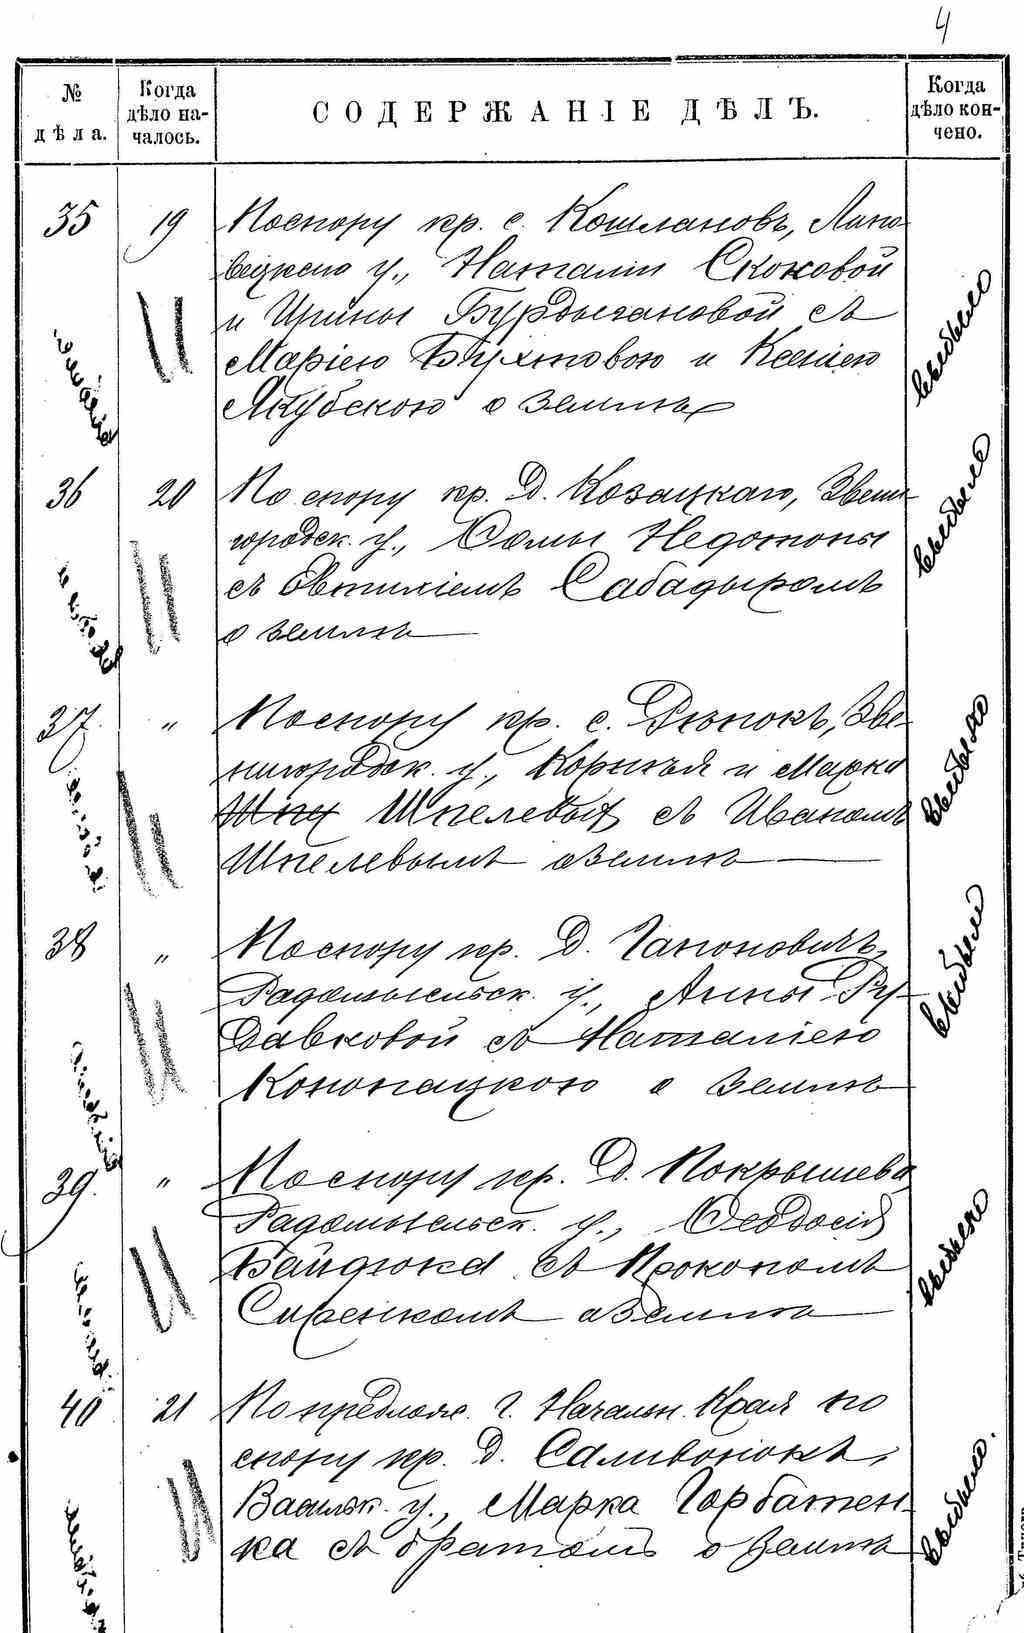 4
№ дѣла.
Когда дѣло на-
чалось.
СОДЕРЖАНІЕ ДѢЛЪ.
Когда дѣло кон-
чено.
35 19 По спору кр. с. Кошлановъ, Липо-
вецкаго у., Наталіи Скоковой
и Ирины Бурдыгановой съ
Маріею Бухтовою и Ксеніею
Якубскою о землѣ
выбыло
36 20 По спору кр. д. Козацкаго, Звени-
городск. у., Ѳомы Недотопы
съ Евтихіемъ Сабадыромъ
о землѣ
выбыло
37. „ По спору кр. с. Рыжокъ, Зве-
нигородск. у., Корнѣя и Марка
Шпелевых съ Иваномъ
Шпелевымъ о землѣ
выбыло
38 „ По спору кр. д. Гапоновичъ,
Радомысльск. у., Анны Ру-
давковой съ Наталіею
Кононацкою о землѣ
выбыло
39. „ По спору кр. д. Покрышева,
Радомысльск. у., Ѳеодосія
Байдюка съ Прокопомъ
Сиренкомъ о землѣ
выбыло
40 21 По предлож. Г. Начальн. Края по
спору кр. д. Саливонокъ,
Васильк. у., Марка Горбатен-
ка съ братомъ о землѣ
выбыло.